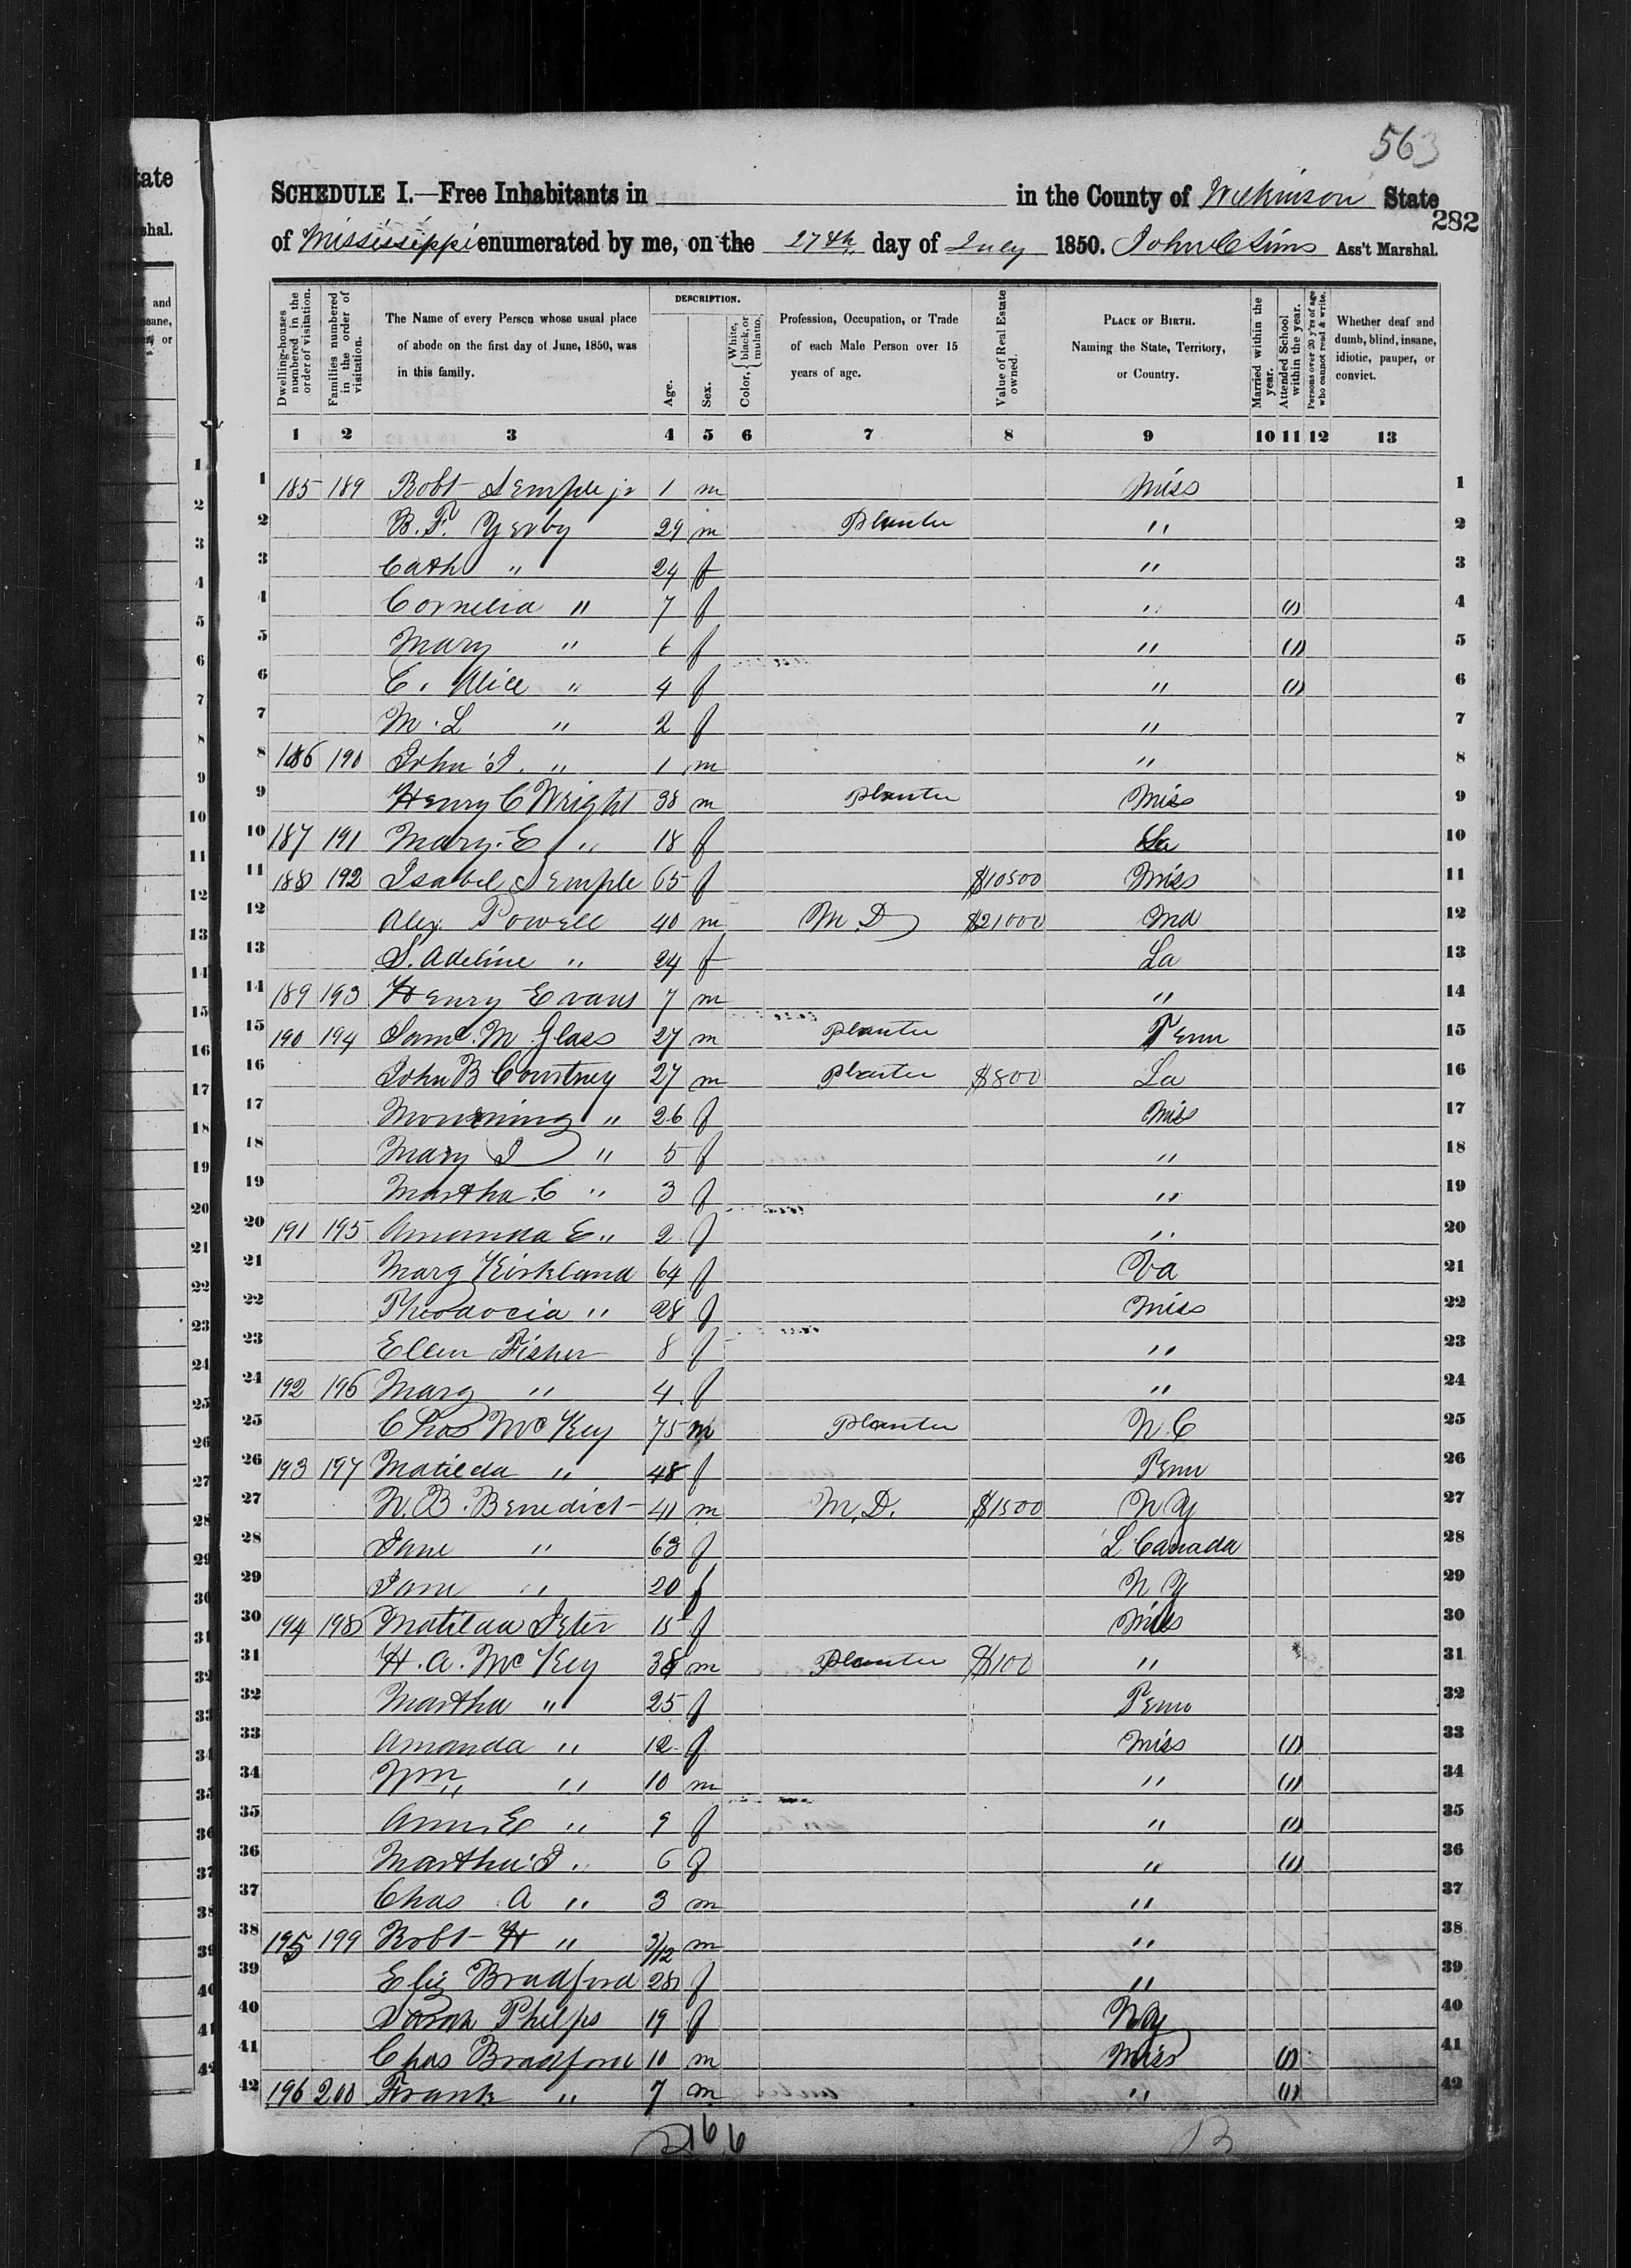 563
SCHEDULE I.—Free Inhabitants in in the County of Wilkinson State
282
of Mississippi enumerated by me, on the 27th day of July 1850. John C Sims Ass't Marshal.
Dwelling-houses numbered in the order of visitation.
Families numbered in the order of visitation.
The Name of every Person whose usual place of abode on the first day of June, 1850, was in this family.
DESCRIPTION.
Age.
Sex.
Color, { White, black, or mulatto.
Profession, Occupation, or Trade of each Male Person over 15 years of age.
Value of Real Estate owned.
PLACE OF BIRTH. Naming the State, Territory, or Country.
Married within the year.
Attended School within the year.
Persons over 20 y'rs of age who cannot read & write.
Whether deaf and dumb, blind, insane, idiotic, pauper, or convict.
1 2 3 4 5 6 7 8 9 10 11 12 13
1 185 189 Robt Semple jr 1 m Miss 1
2 B. F. Yerby 29 m Planter " 2
3 Cath " 24 f " 3
4 Cornelia " 7 f " (1) 4
5 Mary " 6 f " (1) 5
6 C. Alice " 4 f " (1) 6
7 M. L " 2 f " 7
8 186 190 John I. " 1 m " 8
9 Henry C Wright 38 m Planter Miss 9
10 187 191 Mary. E " 18 f La 10
11 188 192 Isabel Semple 65 f $10500 Miss 11
12 Alex. Powell 40 m M D $21000 Md 12
13 S. Adeline " 24 f La 13
14 189 193 Henry Evans 7 m " 14
15 190 194 Saml. M Glass 27 m Planter Tenn 15
16 John B Courtney 27 m Planter $800 La 16
17 Mourning " 26 f Miss 17
18 Mary J " 5 f " 18
19 Martha C " 3 f " 19
20 191 195 Amanda E " 2 f " 20
21 Marg Kirkland 64 f Va 21
22 Theodocia " 28 f Miss 22
23 Ellen Fisher 8 f " 23
24 192 196 Marg " 4 f " 24
25 Chas McKey 75 m Planter N C 25
26 193 197 Matilda " 48 f Tenn 26
27 N. B. Benedict 41 m M. D. $1500 N Y 27
28 Jane " 63 f L Canada 28
29 Jane " 20 f N Y 29
30 194 198 Matilda Jeter 15 f Miss 30
31 H. A. McKey 38 m Planter $100 " 31
32 Martha " 25 f Tenn 32
33 Amanda " 12 f Miss (1) 33
34 Wm " 10 m " (1) 34
35 Ann. E " 9 f " (1) 35
36 Martha J " 6 f " (1) 36
37 Chas A " 3 m " 37
38 195 199 Robt H " 3/12 m " 38
39 Eliz Bradford 28 f " 39
40 Sarah Phelps 19 f N Y 40
41 Chas Bradford 10 m Miss (1) 41
42 196 200 Frank " 7 m " (1) 42